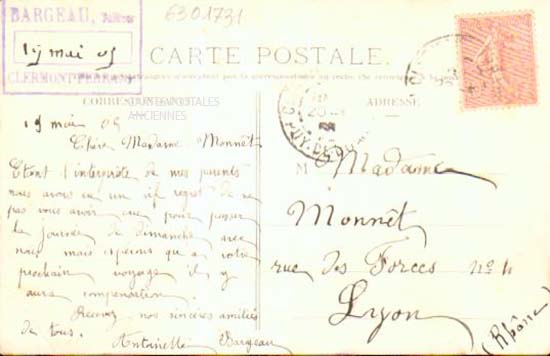 6301731
BARGEAU, Tailleur
19 mai 05
CLERMONT-FERRAND
CARTE POSTALE.
CARTES POSTALES
ANCIENNES
CORRESPONDANCE
19 mai 05
Chère Madame Monnêt
Etant l'interprète de mes parents
nous avons eu un vif regret de ne
pas vous avoir eue pour passer
la journée de dimanche avec
nous mais espérons qu'a votre
prochain voyage il y
aura compensation.
Recevez nos sincères amitiés
de tous.
Antoinette Bargeau
PUY-DE-DOME
ADRESSE
M Madame
Monnêt
rue des Forces no 4
Lyon
(Rhône)